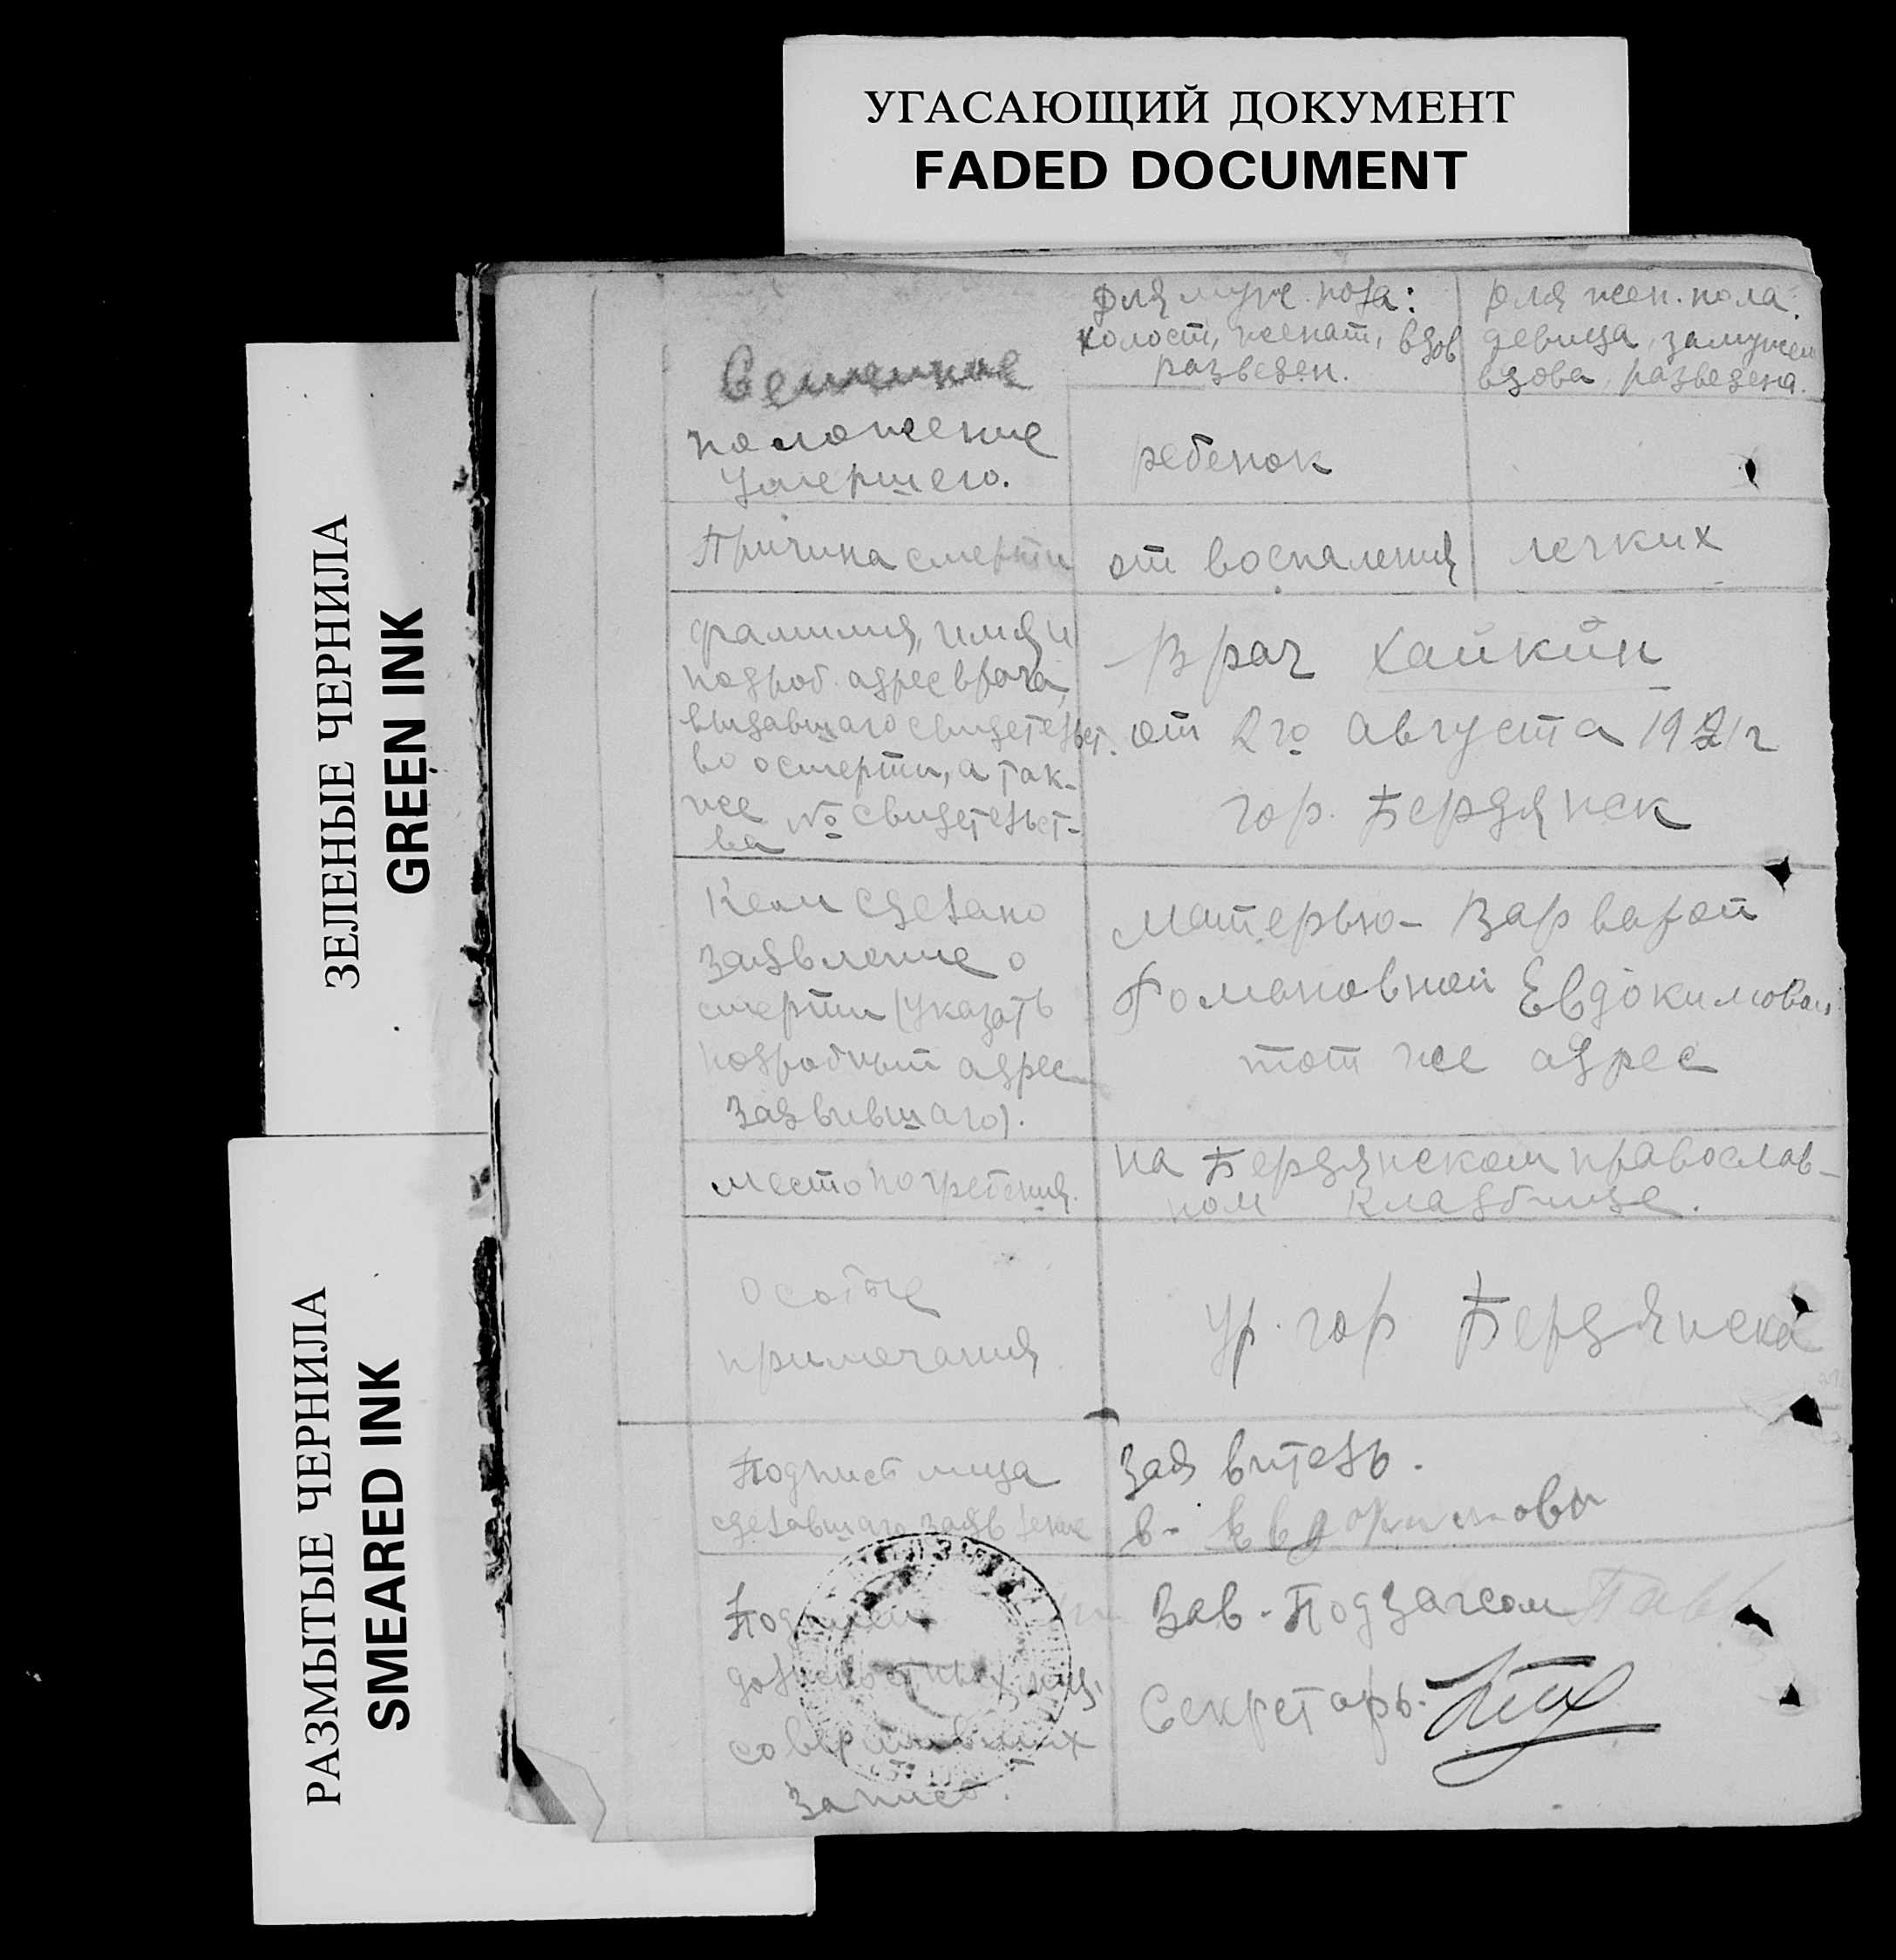 УГАСАЮЩИЙ ДОКУМЕНТ
FADED DOCUMENT
ЗЕЛЕНЫЕ ЧЕРНИЛА
GREEN INK
РАЗМЫТЫЕ ЧЕРНИЛА
SMEARED INK
Для муж. пола:
холост, женат, вдов
разведен.
Для жен. пола:
девица, замужем
вдова, разведена.
Семейное
положение
умершего.
ребенок
Причина смерти
от воспаления легких
Фамилия, имя и
подроб. адрес врача,
выдавшаго свидетельст.
во о смерти, а так-
же № свидетельст-
ва
Врач Хайкин
от 2го августа 1921г
гор. Бердянск
Кем сделано
заявление о
смерти (указать
подробный адрес
заявившаго).
Матерью - Варварой
Романовной Евдокимовой
тот же адрес
Место погребения.
на Бердянском православ-
ном кладбище.
Особые
примечания
Ур. гор Бердянска
Подпись лица
сделавшаго заявление
Заявитель.
В. Евдокимова
Подписи
должностных лиц,
совершивших
запись.
Зав. Подзагсом
Секретарь.